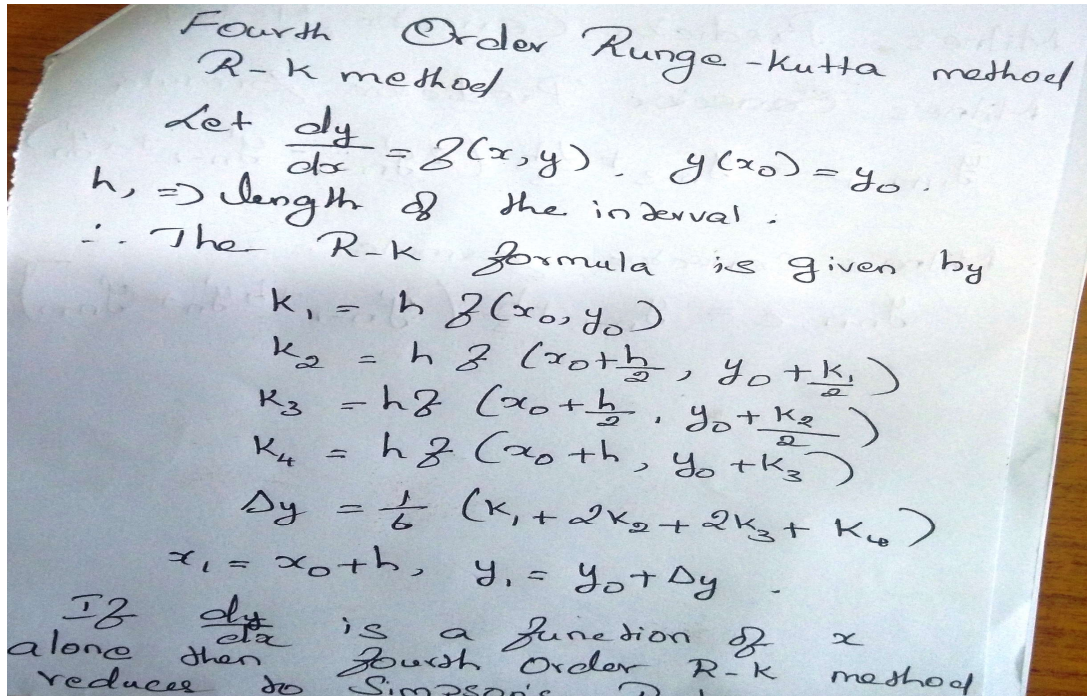 Fourth Order Runge-Kutta method
R-K method
Let dy/dx = f(x, y), y(x₀) = y₀.
h, => length of the interval.
∴ The R-K formula is given by
K₁ = h f(x₀, y₀)
K₂ = h f (x₀ + h/2, y₀ + K₁/2)
K₃ = h f (x₀ + h/2, y₀ + K₂/2)
K₄ = h f (x₀ + h, y₀ + K₃)
Δy = 1/6 (K₁ + 2K₂ + 2K₃ + K₄)
x₁ = x₀ + h, y₁ = y₀ + Δy.
If dy/dx is a function of x
alone then fourth Order R-K method
reduces to Simpson's